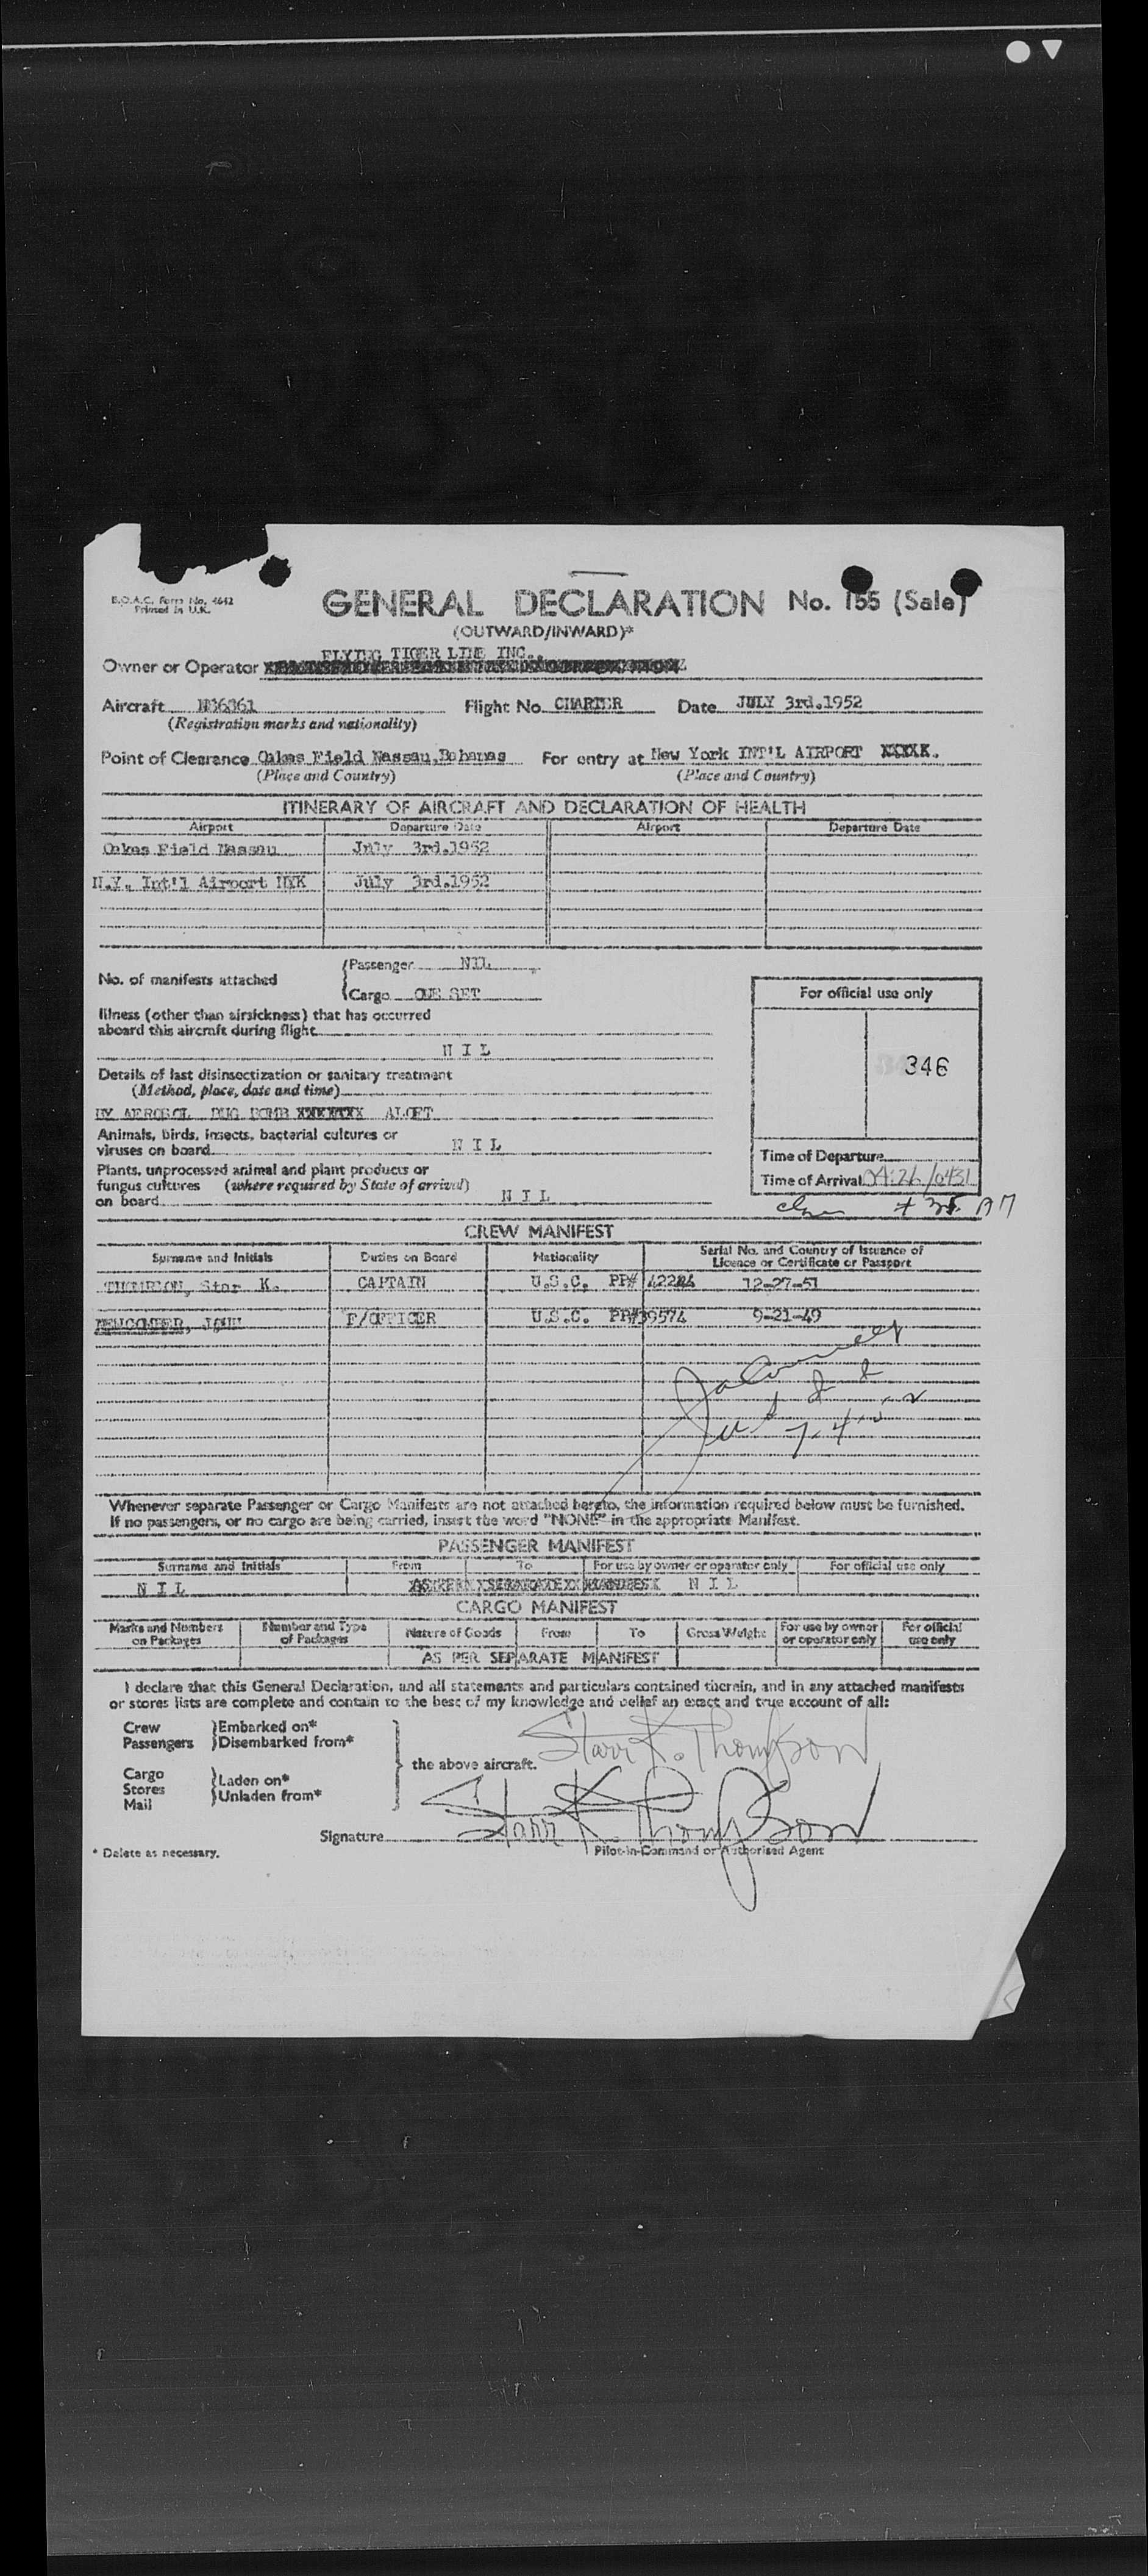 B.O.A.C. Form No. 4642
Printed in U.K.
GENERAL DECLARATION No. 155 (Sale)
(OUTWARD/INWARD)*
FLYING TIGER LINE INC.,
Owner or Operator
Aircraft N86861 Flight No. CHARTER Date JULY 3rd.1952
(Registration marks and nationality)
Point of Clearance Oakes Field Nassau,Bahamas For entry at New York INT'L AIRPORT XXXXX.
(Place and Country) (Place and Country)
ITINERARY OF AIRCRAFT AND DECLARATION OF HEALTH
Airport Departure Date Airport Departure Date
Oakes Field Nassau July 3rd.1952
N.Y. Int'l Airport NYK July 3rd.1952
No. of manifests attached
Passenger NIL
Cargo ONE SET
For official use only
Illness (other than airsickness) that has occurred
aboard this aircraft during flight
N I L
346
Details of last disinsectization or sanitary treatment
(Method, place, date and time)
BY AEROSOL BUG BOMB ALOFT
Animals, birds, insects, bacterial cultures or
viruses on board N I L
Time of Departure
Plants, unprocessed animal and plant products or
fungus cultures (where required by State of arrival)
on board N I L
Time of Arrival 04:26/0431
CREW MANIFEST
Surname and Initials Duties on Board Nationality Serial No. and Country of Issuance of
Licence or Certificate or Passport
THOMPSON, Star K. CAPTAIN U.S.C. PP# 42244 12-27-51
NEWCOMBER, JOHN F/OFFICER U.S.C. PP#39574 9-21-49
7-4-52
Whenever separate Passenger or Cargo Manifests are not attached hereto, the information required below must be furnished.
If no passengers, or no cargo are being carried, insert the word "NONE" in the appropriate Manifest.
PASSENGER MANIFEST
Surname and Initials From To For use by owner or operator only For official use only
N I L N I L
CARGO MANIFEST
Marks and Numbers on Packages Number and Type of Packages Nature of Goods From To Gross Weight For use by owner or operator only For official use only
AS PER SEPARATE MANIFEST
I declare that this General Declaration, and all statements and particulars contained therein, and in any attached manifests
or stores lists are complete and contain to the best of my knowledge and belief an exact and true account of all:
Crew Embarked on*
Passengers Disembarked from*
Starr K. Thompson
the above aircraft.
Cargo
Stores Laden on*
Mail Unladen from*
Signature Starr K. Thompson
* Delete as necessary. Pilot-in-Command or Authorised Agent